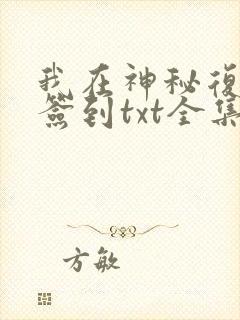 我在神秘復
签到txt全集
方敏